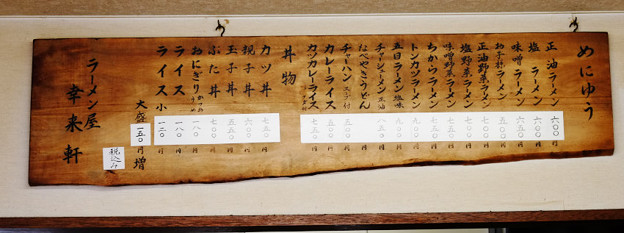 めにゆう
正油ラーメン 六〇〇円
塩ラーメン 六〇〇円
味噌ラーメン 六五〇円
おろ朴ラーメン
正油野菜ラーメン 七〇〇円
塩野菜ラーメン 七〇〇円
味噌野菜ラーメン 七五〇円
ちからラーメン 七〇〇円
トンカツラーメン 九〇〇円
五目ラーメン 九〇〇円
チャーシューメン 正油 八五〇円
なべやきうどん
チャーハン スープ付
カレーライス
カツカレーライス
丼物
カツ丼 七五〇円
親子丼 六〇〇円
玉子丼 五五〇円
ぶた丼 七〇〇円
おにぎり 一八〇円
ライス 一八〇円
ライス小 一二〇円
大盛 一五〇円増
税込み
ラーメン屋
幸来軒